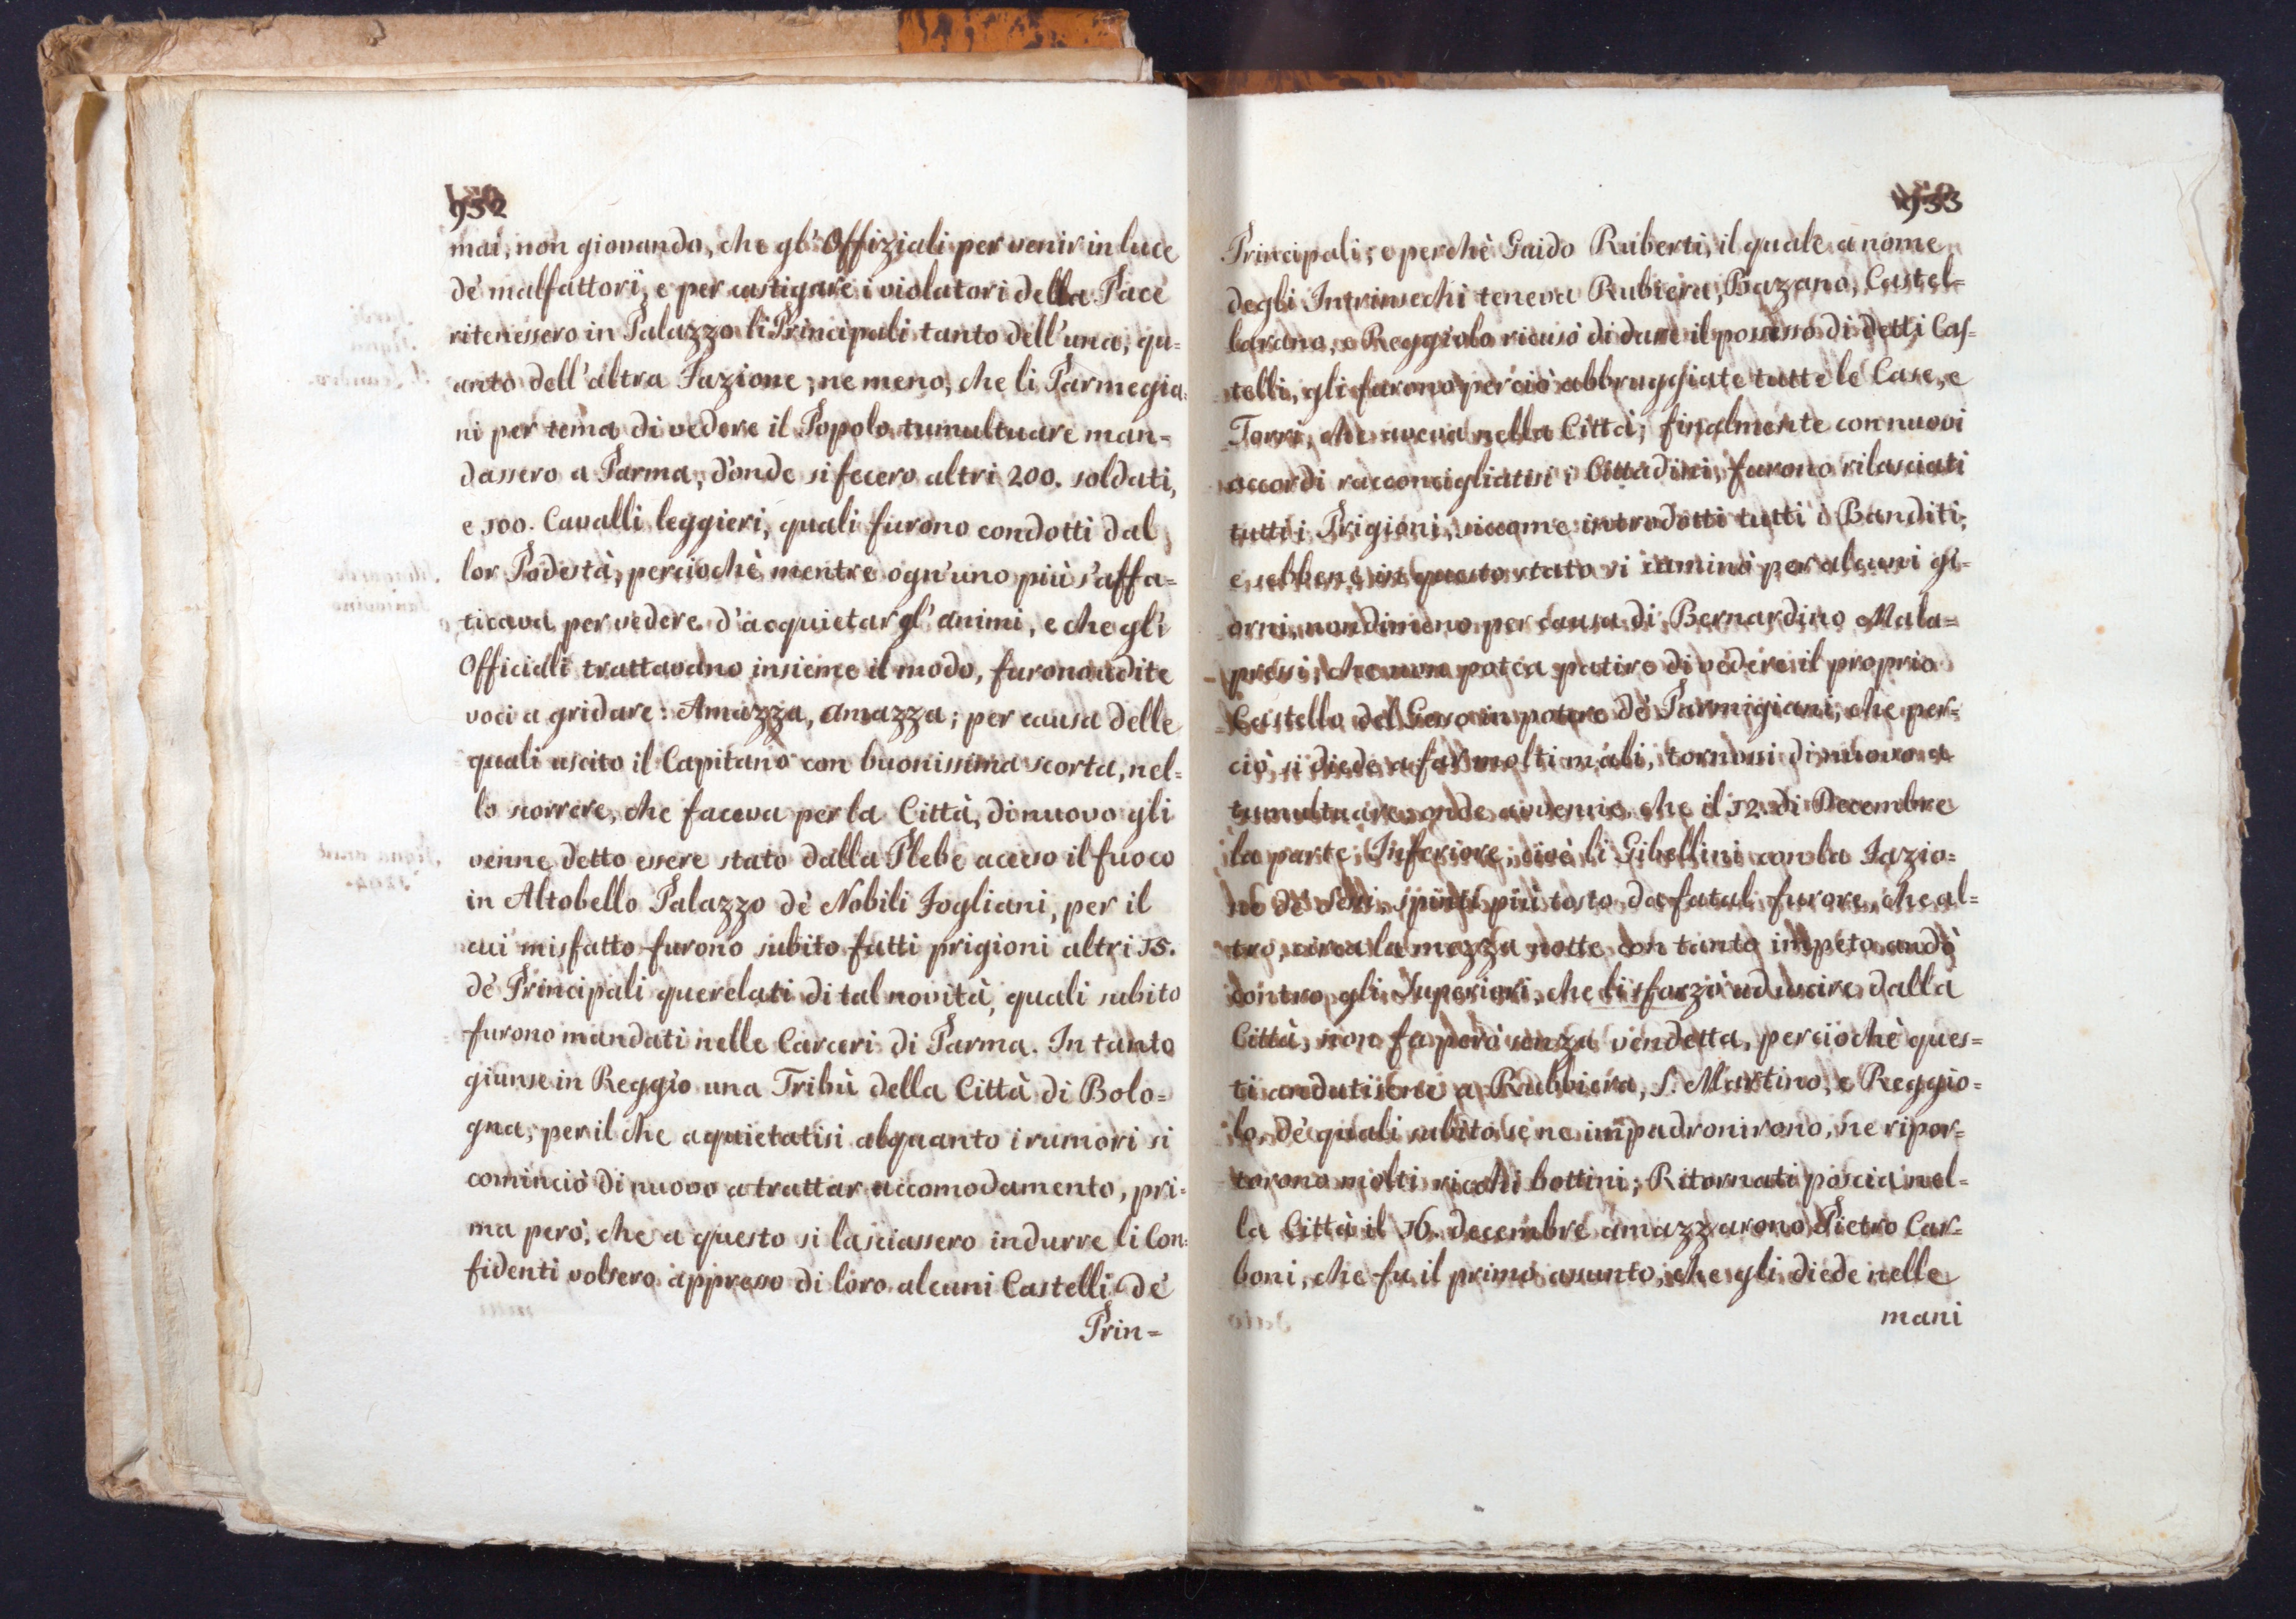 952
mai, non giovando, che gl'Offiziali per venir in luce
dè malfattori, e per castigare i violatori della Pace
ritenessero in Palazzo li Principali tanto dell'una, qu=
anto dell'altra Fazione; ne meno, che li Parmegia=
ni per tema di vedere il Popolo tumultuare man=
dassero a Parma, d'onde si fecero altri 200. soldati,
e 100. Cavalli leggieri, quali furono condotti dal
lor Podestà, perciochè mentre ogn'uno più s'affa=
ticava per vedere d'acquietar gl'animi, e che gl'i
Officiali trattavano insieme il modo, furono udite
voci a gridare: Amazza, amazza; per causa delle
quali uscito il Capitano con buonissima scorta, nel=
lo scorrere, che faceva per la Città, di nuovo gli
venne detto essere stato dalla Plebe acceso il fuoco
in Altobello Palazzo dè Nobili Fogliani, per il
cui misfatto furono subito fatti prigioni altri 15.
dè Principali querelati di tal novità, quali subito
furono mandati nelle Carceri di Parma. In tanto
giunse in Reggio una Tribù della Città di Bolo=
gna, per il che aquietatisi alquanto i rumori si
cominciò di nuovo a trattar accomodamento, pri=
ma però, che a questo si lasciassero indurre li Con=
fidenti volsero appresso di loro alcuni Castelli dè
Prin=
953
Principali; e perchè Guido Ruberti, il quale a nome
degli Intrinsechi teneva Rubiera, Bazano, Castel=
larano, e Reggiolo ricusò di dare il possesso di detti Cas=
telli, gli furono perciò abbruggiate tutte le Case, e
Torri, che aveva nella Città; finalmente con nuovi
accordi racconcigliatisi i Cittadini, furono rilasciati
tutti i Prigioni, siccome introdotti tutti i Banditi;
e sebbene in questo stato si caminò per alcuni gi=
orni, nondimeno per causa di Bernardino Mala=
pressi, che non potea patire di vedere il proprio
Castello del Gesso in potere dè Parmigiani, che per=
ciò si diede a far molti mali, tornossi di nuovo a
tumultuare, onde avvenne, che il 12. di Decembre
la parte Inferiore, cioè li Gibellini con la Fazio=
ne dè Sessi, spinti più tosto da fatal furore, che al=
tro, circa la mezza notte con tanto impeto andò
contro gli Superiori, che li sforzò ad uscire dalla
Città, non fu però senza vendetta, perciochè ques=
ti andutisene a Rubbiera, S. Martino, e Reggio=
lo, dè quali subito se ne impadronirono, ne ripor=
torono molti ricchi bottini; Ritornati poscia nel=
la Città il 16. decembre amazzarono Pietro Car=
boni, che fu il primo assunto, che gli diede nelle
mani